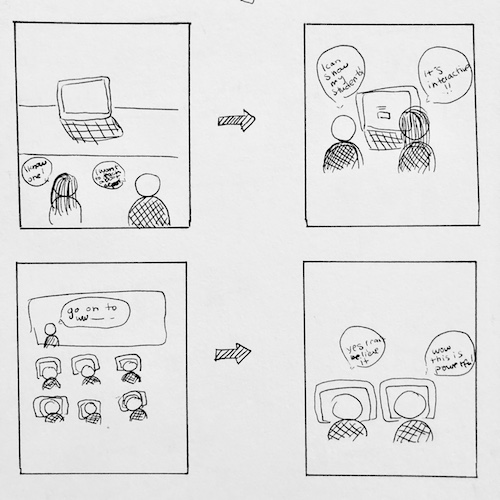 I know
one!
I want
to
I can
show
my
students
It's
interactive
!!
go on to
ww__ _ _
yes I can
believe
it
wow
this is
powerful